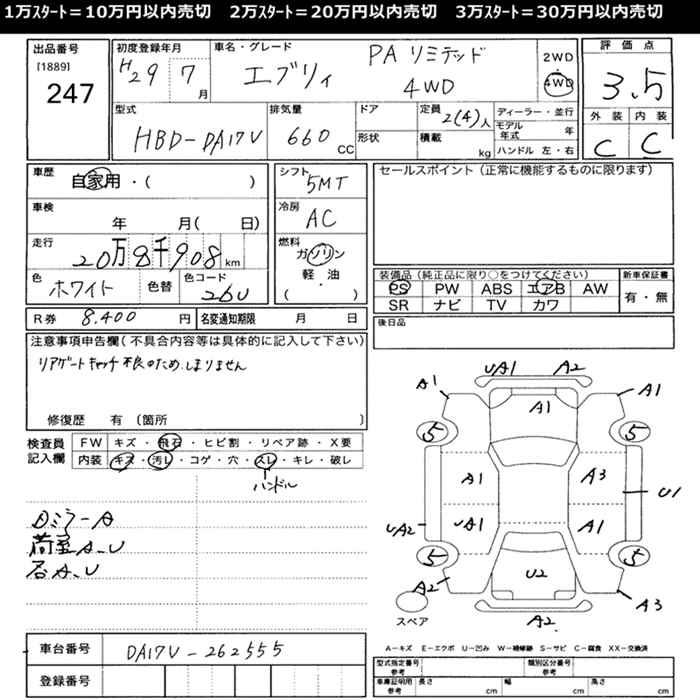 1万ｽﾀｰﾄ＝10万円以内売切　2万ｽﾀｰﾄ＝20万円以内売切　3万ｽﾀｰﾄ＝30万円以内売切
出品番号
[1889]
247
初度登録年月
H29 7月
車名・グレード
エブリィ PA リミテッド 4WD
2WD
4WD
評価点
3.5
外装 内装
C C
型式
HBD-DA17V
排気量
660 CC
ドア
形状
定員
2(4)人
積載
kg
ディーラー・並行
モデル年式 年
ハンドル 左・右
車歴
自家用・( )
車検
年 月( 日)
走行
20万8千908km
色
ホワイト
色替
色コード
26U
シフト
5MT
冷房
AC
燃料
ガソリン
軽・油
( )
セールスポイント（正常に機能するものに限ります）
装備品（純正品に限り○をつけてください）
PS PW ABS エアB AW
SR ナビ TV カワ
新車保証書
有・無
後日品
R券 8,400 円
名変通知期限 月 日
注意事項申告欄（不具合内容等は具体的に記入して下さい）
リアゲートキャッチ不良のため、しまりません
修復歴 有〔箇所 〕
検査員記入欄
FW キズ・飛石・ヒビ割・リペア跡・X要
内装 キズ・汚レ・コゲ・穴・スレ・キレ・破レ
ハンドル
ミラーA
荷室A.U
A.U
UA1 A2
A1 A1 A1
5 5
A1 A3
U1
UA2 UA1 A1
5 5
U2
A2 A3
A2
スペア
A－キズ E－エクボ U－凹み W－補修跡 S－サビ C－腐食 XX－交換済
車台番号
DA17V-262555
登録番号
型式指定番号
参考
類別区分番号
参考
車庫証明用
参考
長さ cm 幅 cm 高さ cm